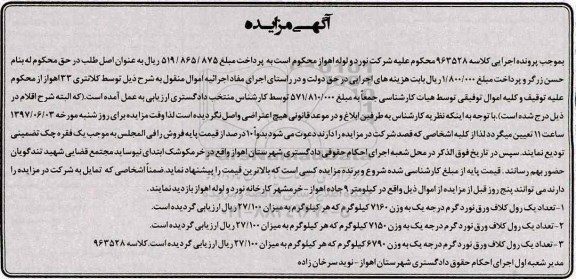 آگهی مزایده
بموجب پرونده اجرایی کلاسه ۹۶۳۵۲۸ محکوم علیه شرکت نورد و لوله اهواز محکوم است به پرداخت مبلغ ۵۱۹/۸۶۵/۸۷۵ ریال به عنوان اصل طلب در حق محکوم له بنام
حسن زرگر و پرداخت مبلغ ۱/۸۰۰/۰۰۰ ریال بابت هزینه های اجرایی در حق دولت و در راستای اجرای مفاد اجرائیه اموال منقول به شرح ذیل توسط کلانتری ۳۳ اهواز از محکوم
علیه توقیف و کلیه اموال توقیفی توسط هیات کارشناسی جمعا به مبلغ ۵۷۱/۸۱۰/۰۰۰ توسط کارشناس منتخب دادگستری ارزیابی به عمل آمده است.(که البته شرح اقلام در
ذیل درج شده است).با توجه به اینکه نظریه کارشناس به طرفین ابلاغ و در موعد قانونی هیچ اعتراضی واصل نگردیده است لذا وقت مزایده برای روز شنبه مورخه ۱۳۹۷/۰۶/۰۳
ساعت ۱۱ تعیین میگردد لذا از کلیه اشخاصی که قصد شرکت در مزایده را دارند دعوت می شود بدوا ۱۰ درصد از قیمت پایه فروش را فی المجلس به موجب یک فقره چک تضمینی
تودیع نمایند. سپس در تاریخ فوق الذکر در محل شعبه اجرای احکام حقوقی دادگستری شهرستان اهواز واقع در خرمکوشک ابتدای نیوساید مجتمع قضایی شهید تندگویان
حضور بهم رسانند. قیمت پایه از مبلغ کارشناسی شده شروع و برنده مزایده کسی است که بالاترین قیمت را پیشنهاد نماید.ضمنا اشخاصی که تمایل به شرکت در مزایده را
دارند می توانند پنج روز قبل از مزایده از اموال ذیل واقع در کیلومتر ۹ جاده اهواز-خرمشهر کارخانه نورد و لوله اهواز بازدید نمایند.
۱-تعداد یک رول کلاف ورق نورد گرم درجه یک به وزن ۷۱۶۰ کیلوگرم که هر کیلوگرم به میزان ۲۷/۱۰۰ ریال ارزیابی گردیده است.
۲-تعداد یک رول کلاف ورق نورد گرم درجه یک به وزن ۷۱۵۰ کیلوگرم که هر کیلوگرم به میزان ۲۷/۱۰۰ ریال ارزیابی گردیده است.
۳-تعداد یک رول کلاف ورق نورد گرم درجه یک به وزن ۶۷۹۰ کیلوگرم که هر کیلوگرم به میزان ۲۷/۱۰۰ ریال ارزیابی گردیده است.کلاسه ۹۶۳۵۲۸
مدیر شعبه اول اجرای احکام حقوقی دادگستری شهرستان اهواز-نوید سرخان زاده